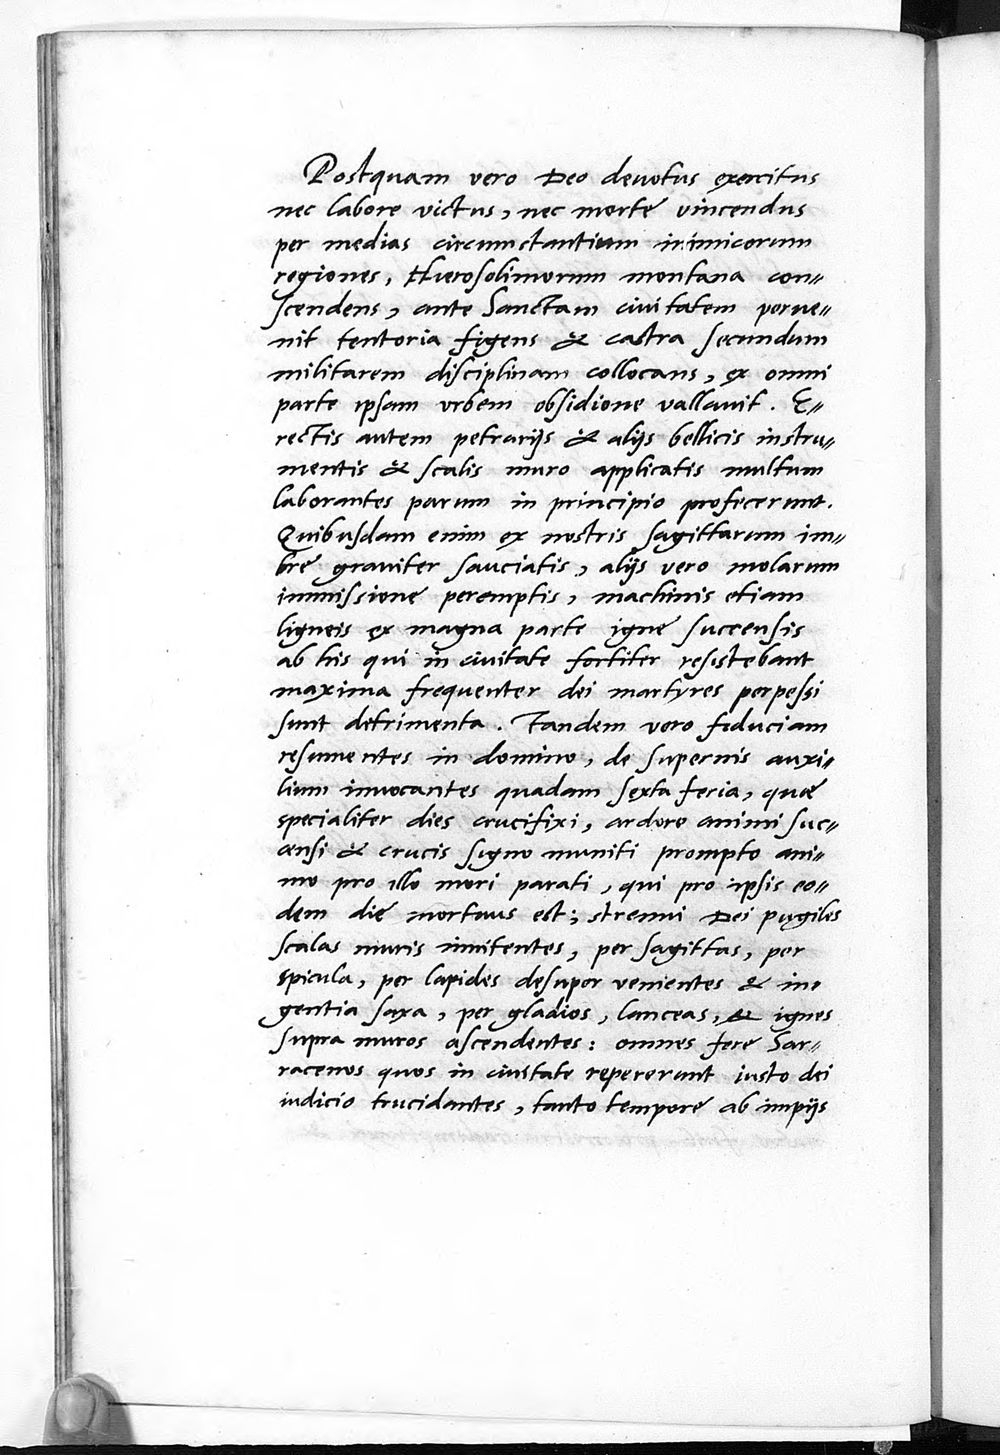 Postquam vero Deo deuotus exercitus
nec labore victus, nec morte vincendus
per medias circumstantium inimicorum
regiones, Hierosolimorum montana con=
scendens, ante Sanctam ciuitatem perue=
nit tentoria figens & castra secundum
militarem disciplinam collocans, ex omni
parte ipsam vrbem obsidione vallauit. E=
rectis autem petrarijs & alijs bellicis instru=
mentis & scalis muro applicatis multum
laborantes parum in principio profecerunt.
Quibusdam enim ex nostris sagittarum im=
bre grauiter sauciatis, alijs vero molarum
immissione peremptis, machinis etiam
ligneis ex magna parte igne succensis
ab his qui in ciuitate fortiter resistebant
maxima frequenter dei martyres perpessi
sunt detrimenta. Tandem vero fiduciam
resumentes in domino, de supernis auxi=
lium inuocantes quadam sexta feria, quae
specialiter dies crucifixi, ardore animi suc=
censi & crucis signo muniti prompto ani=
mo pro illo mori parati, qui pro ipsis eo=
dem die mortuus est; strenui Dei pugiles
scalas muris innitentes, per sagittas, per
spicula, per lapides desuper venientes & in=
gentia saxa, per gladios, lanceas, & ignes
supra muros ascendentes: omnes fere Sar=
racenos quos in ciuitate repererunt iusto dei
iudicio trucidantes, tanto tempore ab impijs